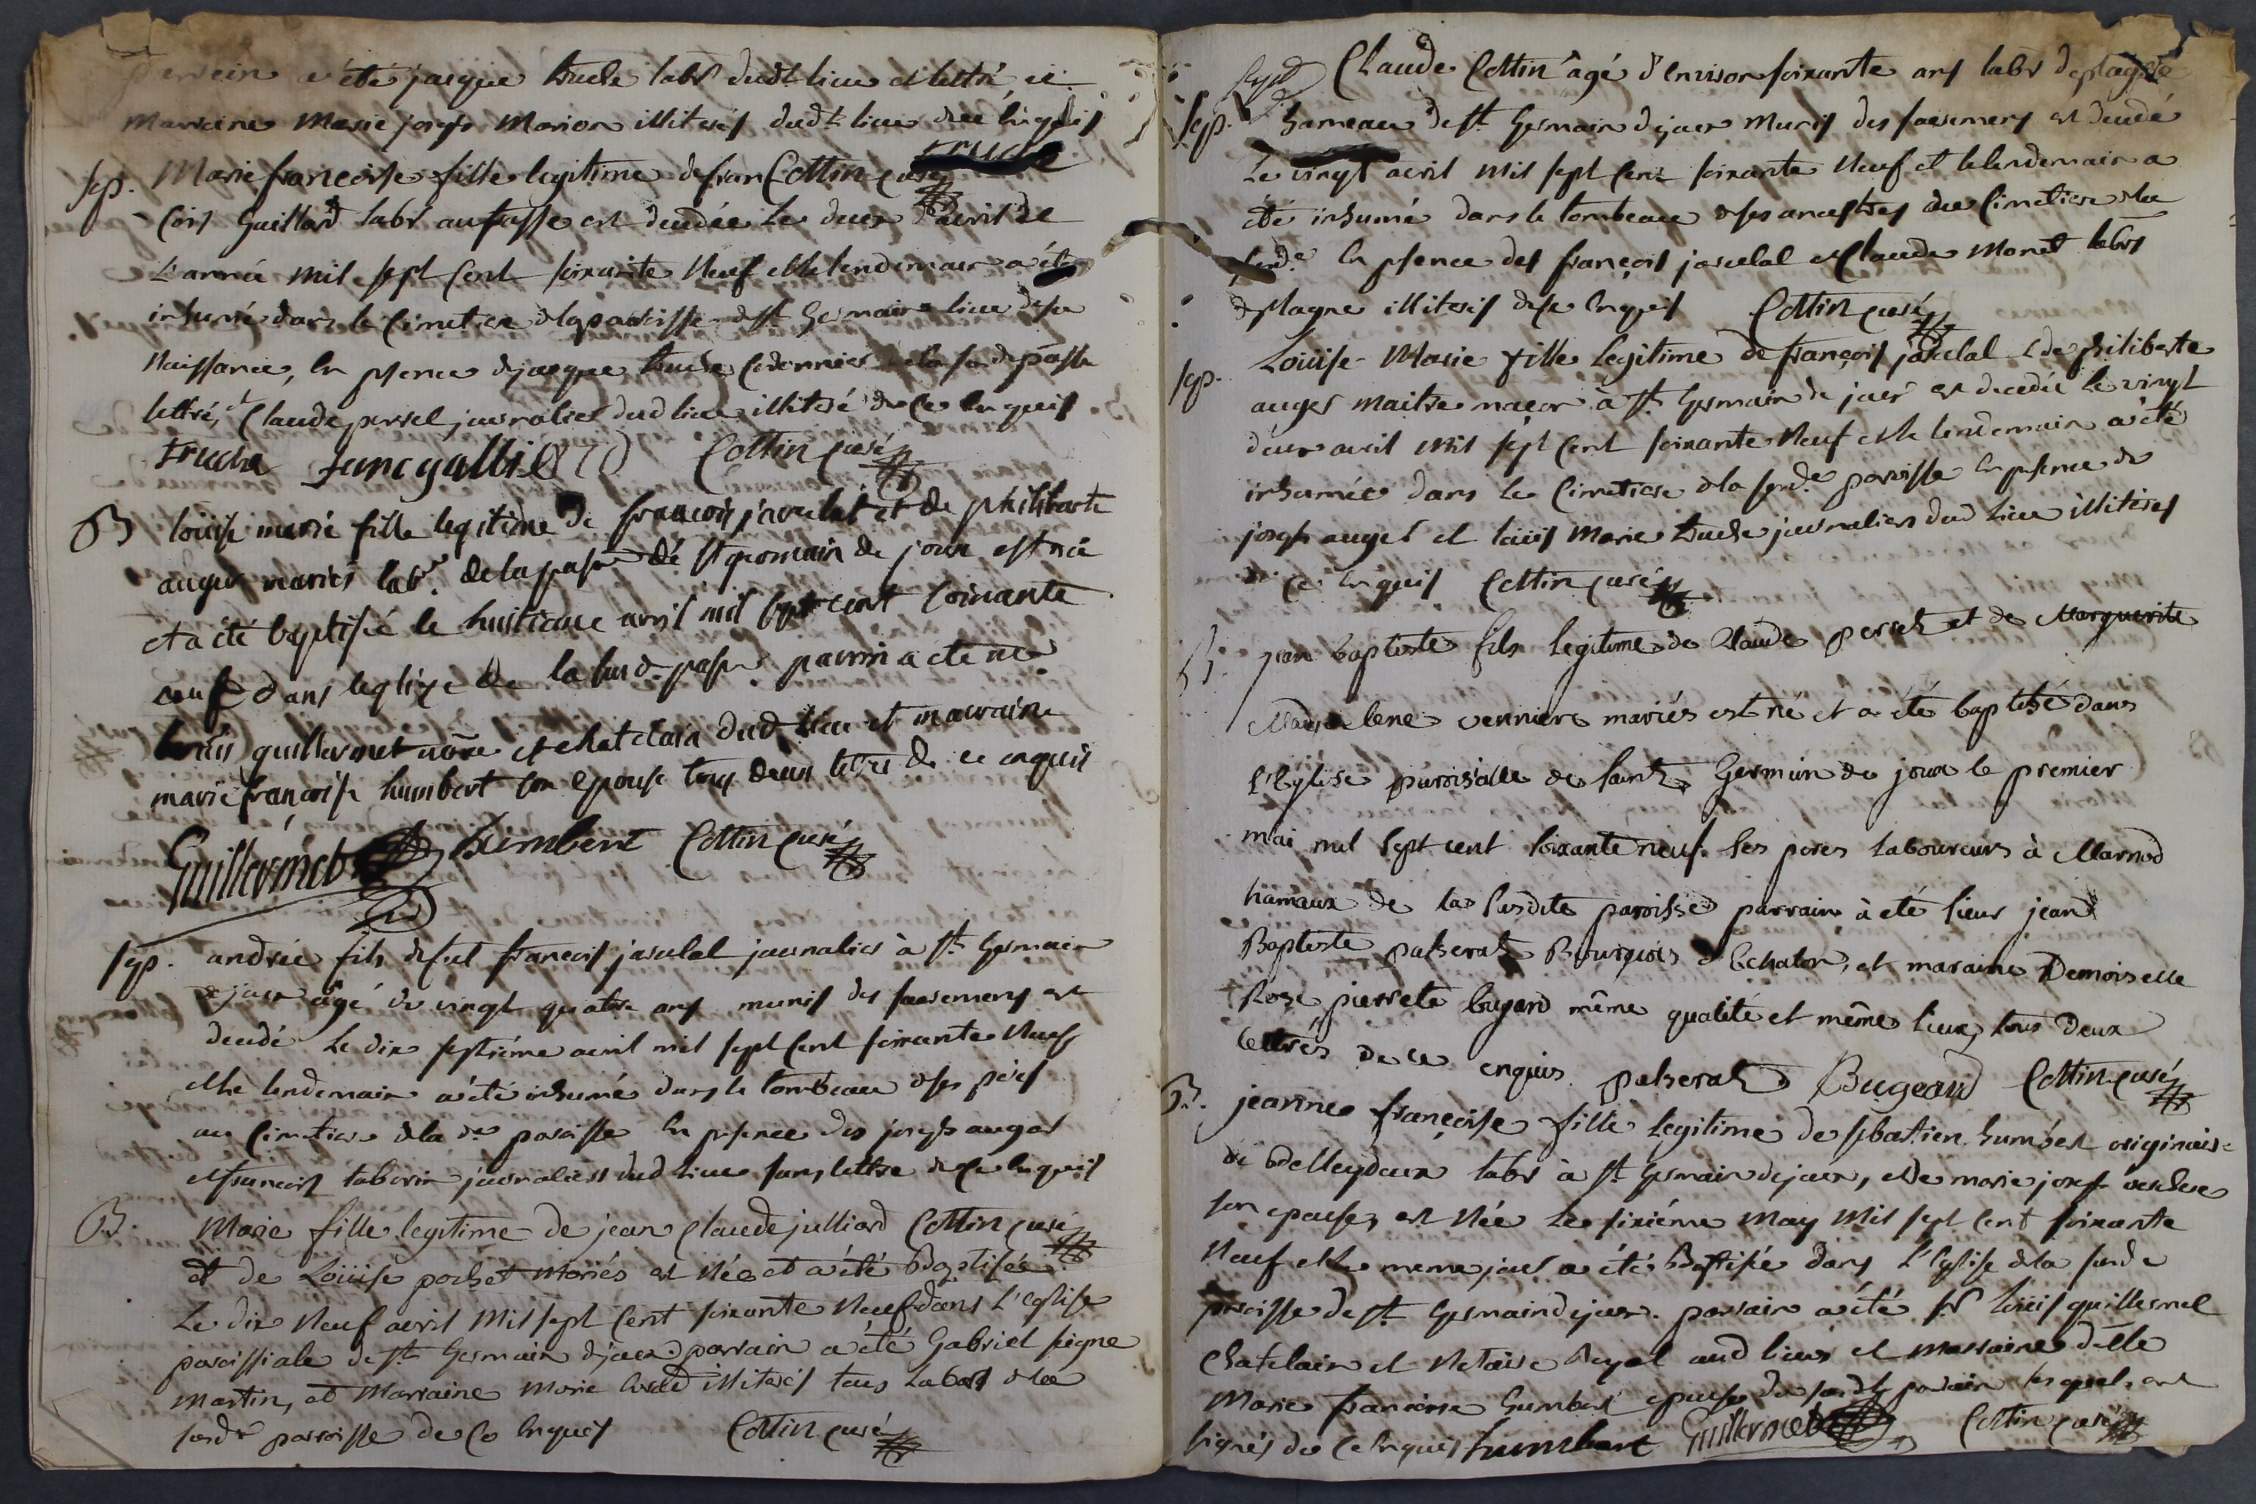 parrein a été jacque truche labr dudt lieu et lettré, et
marraine Marie joseph Marion illiterés dudt lieu de ce enquis
truche
Cottin curé
sep. Marie françoise fille legitime de fran
çois Guillard labr au passe est decedée le deux d'avril de
L'année mil sept cent soixante Neuf et le lendemain a été
inhumé dans le Cimetiere de la parroisse de st Germain lieu de sa
Naissance, En psence de jacque truche Cordonnier de la susd. passe
lettré, et Claude persel journalier dud lieu illiteré de ce Enquis
truche jancgalliard Cottin curé
B loüise marie fille legitime de françois javelot et de philiberte
auger mariés labr. de la passe de st germain de joux est née
et a été baptisée le huitieme avril mil sept cent soixante
neuf dans leglise de la susd. passe. parrin a eté me
Louis guillermet nore et chatelain dud. lieu et marraine
marie françoise humbert son epouse tous deux lettrés de ce enquis
Guillermet humbert Cottin curé
sep. andrée fils de fut françois javelot journalier à st Germain
de joux âgé de vingt quatre ans munis des sacremens est
decedé Le dix septiéme avril mil sept Cent soixante Neuf
et le lendemain a été inhumé dans le tombeau de ses peres
au Cimetiere de la de paroisse En presence des joseph auger
et françois taborin journaliers dud Lieu sans lettre de ce Enquis
Cottin curé
B. Marie fille legitime de jean Claude julliard
et de Loüise pochet Mariés est Née et a été Baptisée
Le dix Neuf avril Mil sept Cent soixante Neuf dans L'eglise
paroissiale de st Germain de joux parrain a été Gabriel seigne
martin, et Marraine Marie illiterés tous Labrs de la
susde parroisse de Ce Enquis Cottin curé
Claude Cottin âgé d'Environ soixante ans labr de plagne
sep. hameau de st Germain de joux Munis des sacremens est decedé
Le vingt avril mil sept Cent soixante Neuf et le lendemain a
été inhumé dans le tombeau de ses ancestres au Cimetiere de la
susde. En psence des françois javelot et Claude Monet labrs
de plagne illiterés de ce Enquis Cottin curé
sep. Loüise Marie fille Legitime de françois javelot et de philiberte
auger maitre maçon à st Germain de joux est decedée le vingt
deux avril mil sept Cent soixante Neuf et le lendemain a été
inhumée dans le Cimetiere de la susde paroisse En psence de
joseph auger et loüis Marie truche journaliers dud Lieu illiterés
de ce Enquis Cottin curé
B. jean baptiste fils legitime de Claude perset et de Marguerite
vernier mariés est né et a été baptisé dans
l'Eglise paroissialle de saint Germain de joux le premier
mai mil sept cent soixante neuf. ses peres laboureurs à Marnod
hameaux de la susdite paroisse parrain à eté sieur jean
Baptiste passerat Bourgois d'Echalon, et maraine Demoiselle
Roze pierrete bujard même qualité et même lieux, tous Deux
lettrés de ce enquis passerat Bugeaud Cottin curé
B. jeanne françoise fille legitime de sebastien humbert originaire
de Belleydoux labr à st Germain de joux, et de marie josef
son epouse est Née Le sixiéme May Mil sept Cent soixante
Neuf et le meme jour a été Baptisée dans L'Eglise de la susde
paroisse de st Germain de joux. parrain a été sr Loüis guillermet
Chatelain et Notaire Royal aud lieux et Marraine delle
Marie françoise humbert epouse du susdt parrain lesquels ont
signés de ce Enquis humbert Guillermet Cottin curé